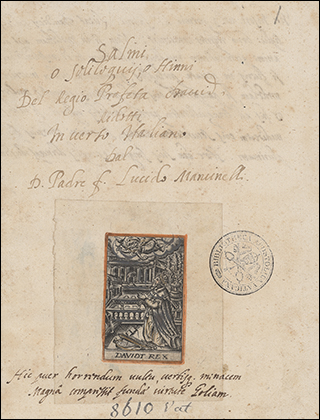 1
Salmi
o soliloqui, o Hinni
Del Regio Profeta David
ridotti
In verso Italiano
dal
D. Padre f. Lucido Mancinelli
DAVIDT REX
Hic puer horrendum vultu, verbisq. minacem
Magnū compescuit funda virtute Goliam
8610 Vat